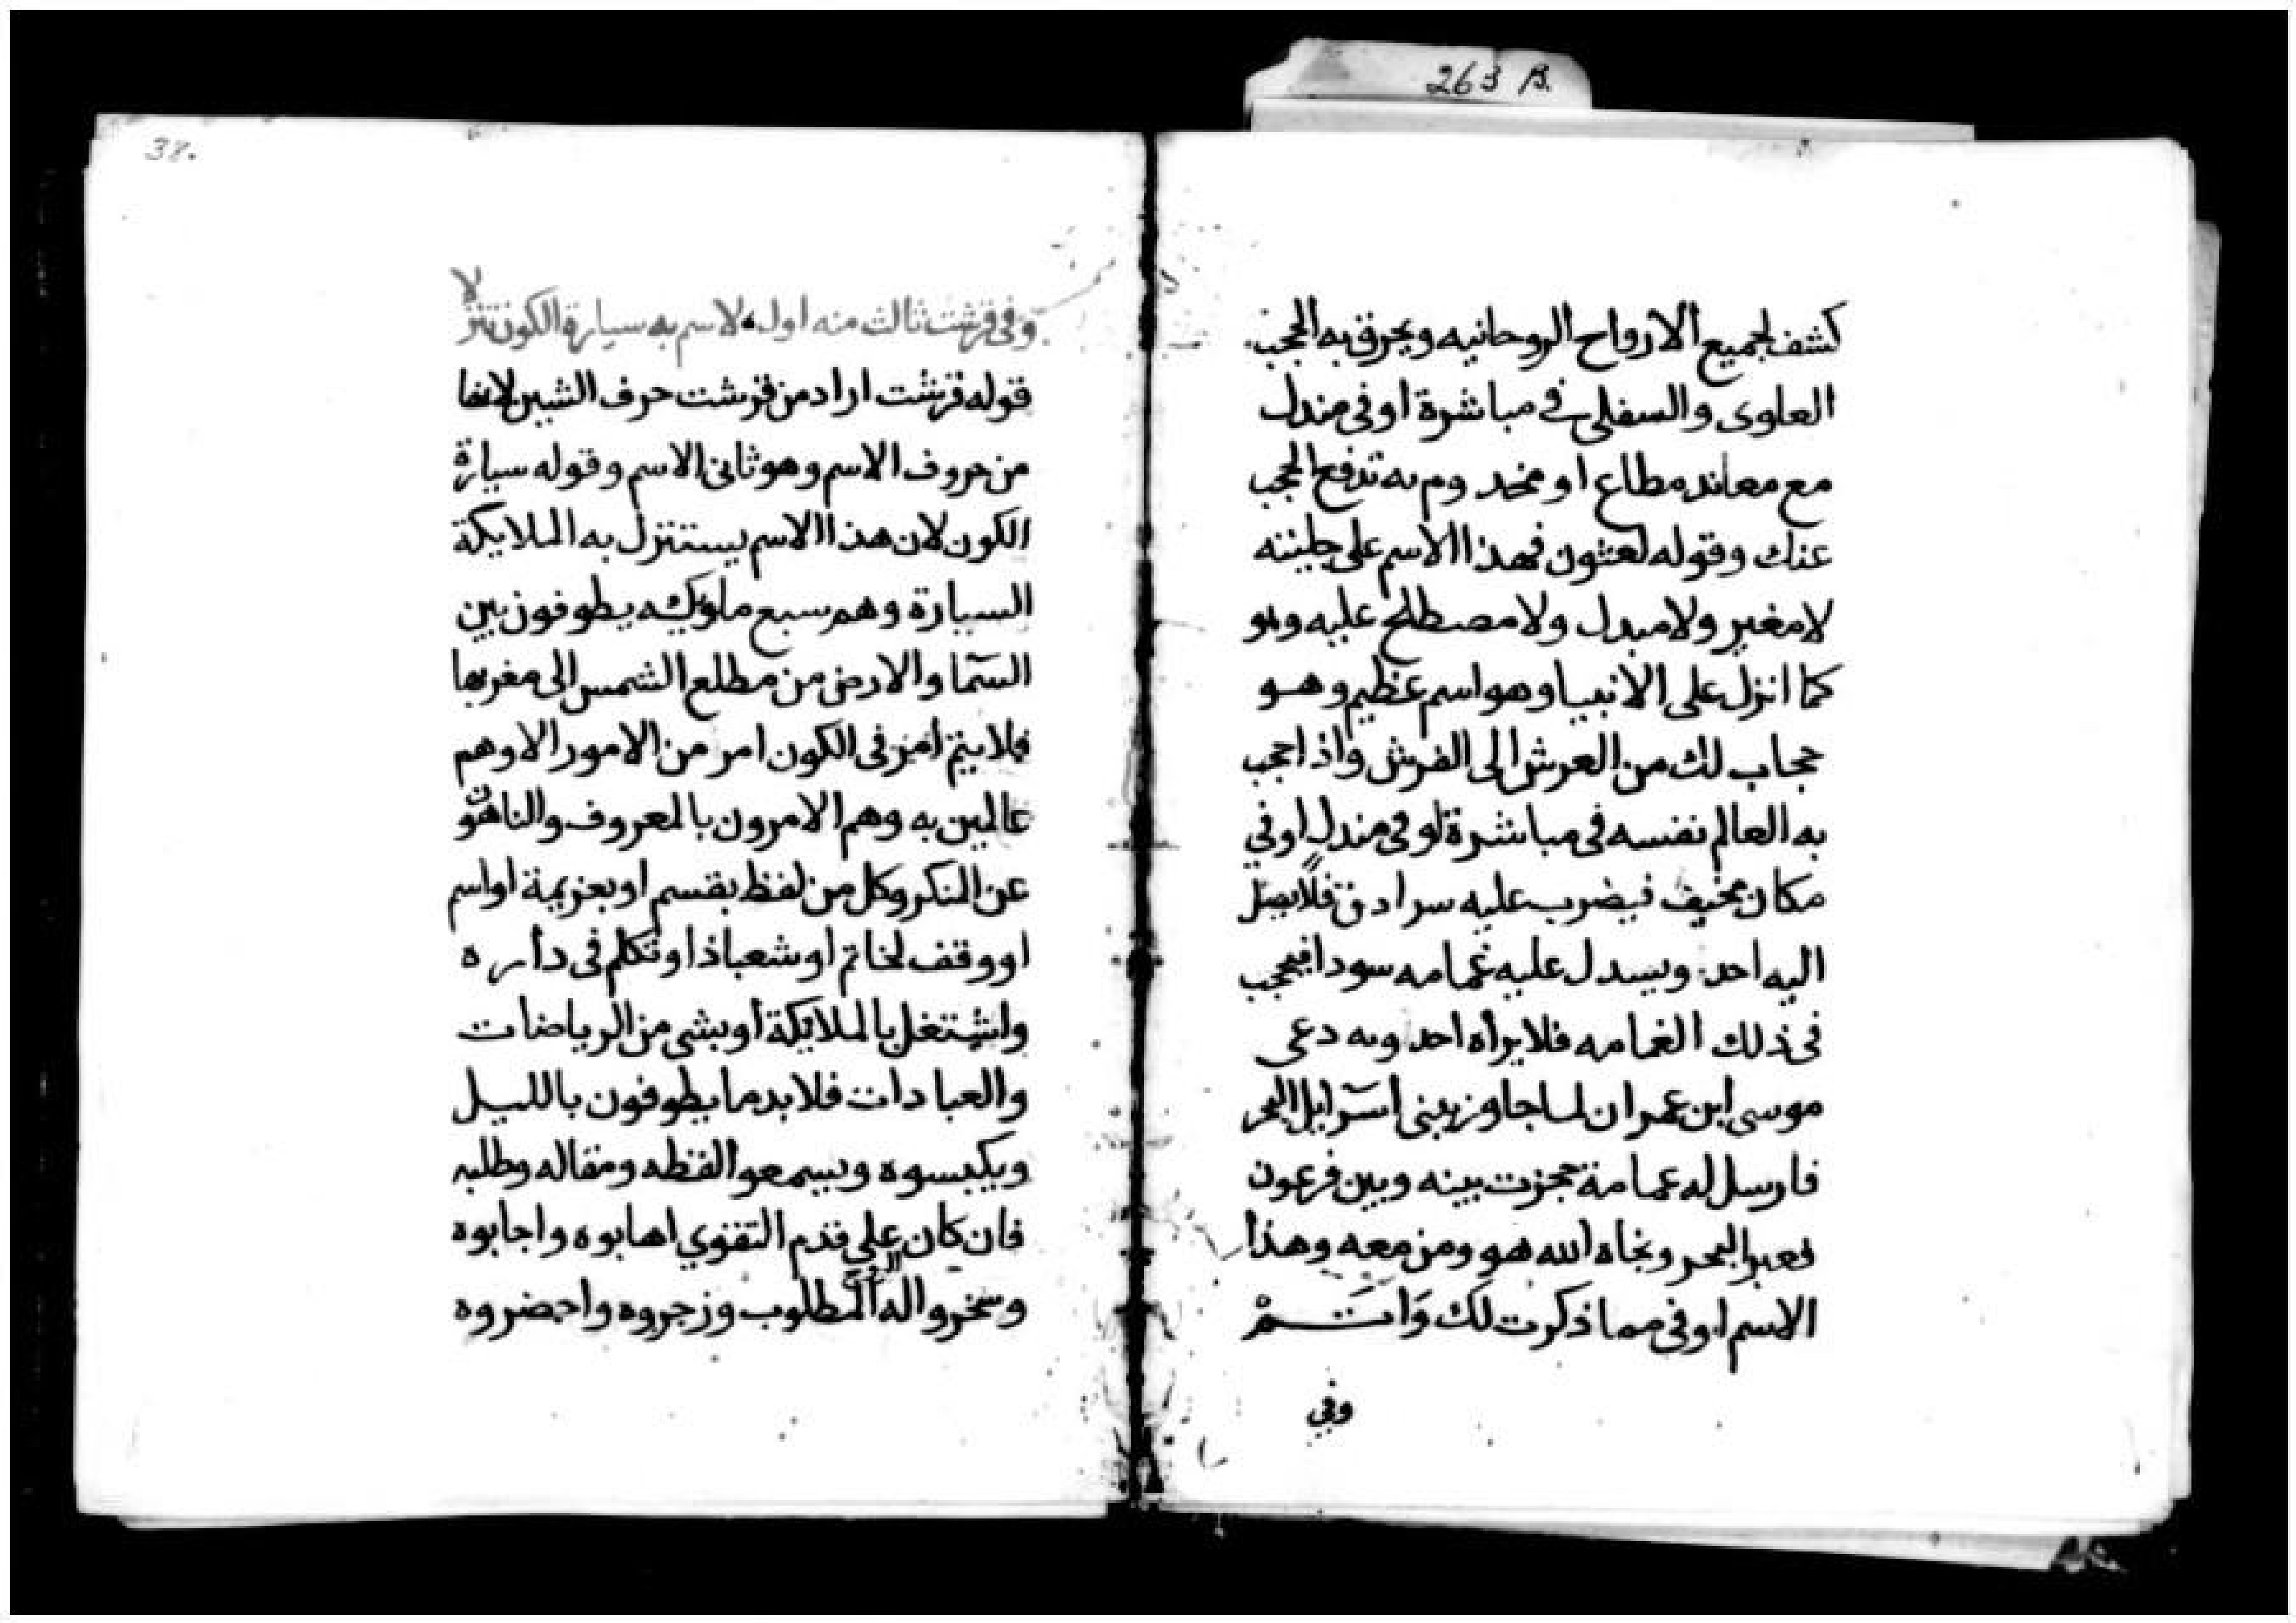 263 B.
كشف لجميع الارواح الروحانيه ويحرق به الحجب
العلوى والسفلى فى مباشرة او فى مندل
مع معاند مطاع او وم به تدفع الحجب
عنك وقوله لعثون فهذا الاسم على جليته
لا مغير ولا مبدل ولا مصطلح عليه وهو
كما انزل على الانبيا وهو اسم عظيم وهو
حجاب لك من العرش الى الفرش واذا حجب
به العالم نفسه فى مباشرة او فى مندل او في
مكان مخيف فيضرب عليه سرادق فلا يصل
اليه احد ويسدل عليه غمامه سودا فيحجب
فى ذلك الغمامه فلا يراه احد وبه دعى
موسى ابن عمران لما جاوز ببنى اسرايل البحر
فارسل له عمامة حجزت بينه وبين فرعون
فعبر البحر ونجاه الله هو ومن معه وهذا
الاسم اوفى مما ذكرت لك وَاتَـمْ
وفي
38.
وفى قرشت ثالث منه اول ولاسم به سيارة الكون تنزلا
قوله قرشت اراد من قرشت حرف الشين لانها
من حروف الاسم وهو ثانى الاسم وقوله سيارة
الكون لان هذا الاسم يستنزل به الملايكة
السيارة وهم سبع ملايكه يطوفون بين
السمآ والارض من مطلع الشمس الى مغربها
فلا يتم امر فى الكون امر من الامور الا وهم
عالمين به وهم الامرون بالمعروف والناهون
عن المنكر وكل من لفظ بقسم او بعزيمة او اسم
او وقف لخاتم او شعباذ او تكلم فى دايره
واشتغل بالملايكة او بشى من الرياضات
والعبادات فلا بد ما يطوفون بالليل
ويكبسوه ويسمعوا لفظه ومقاله وطلبه
فان كان على قدم التقوي اهابوه واجابوه
وسخروا له المطلوب وزجروه واحضروه